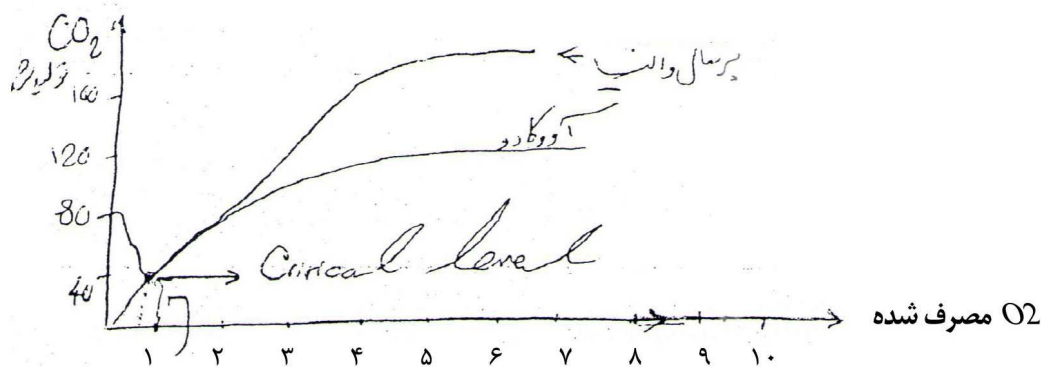 CO₂
تولید شده
160
120
80
40
پرتقال والنسیا
آووکادو
Crirical level
O2 مصرف شده
۱ ۲ ۳ ۴ ۵ ۶ ۷ ۸ ۹ ۱۰